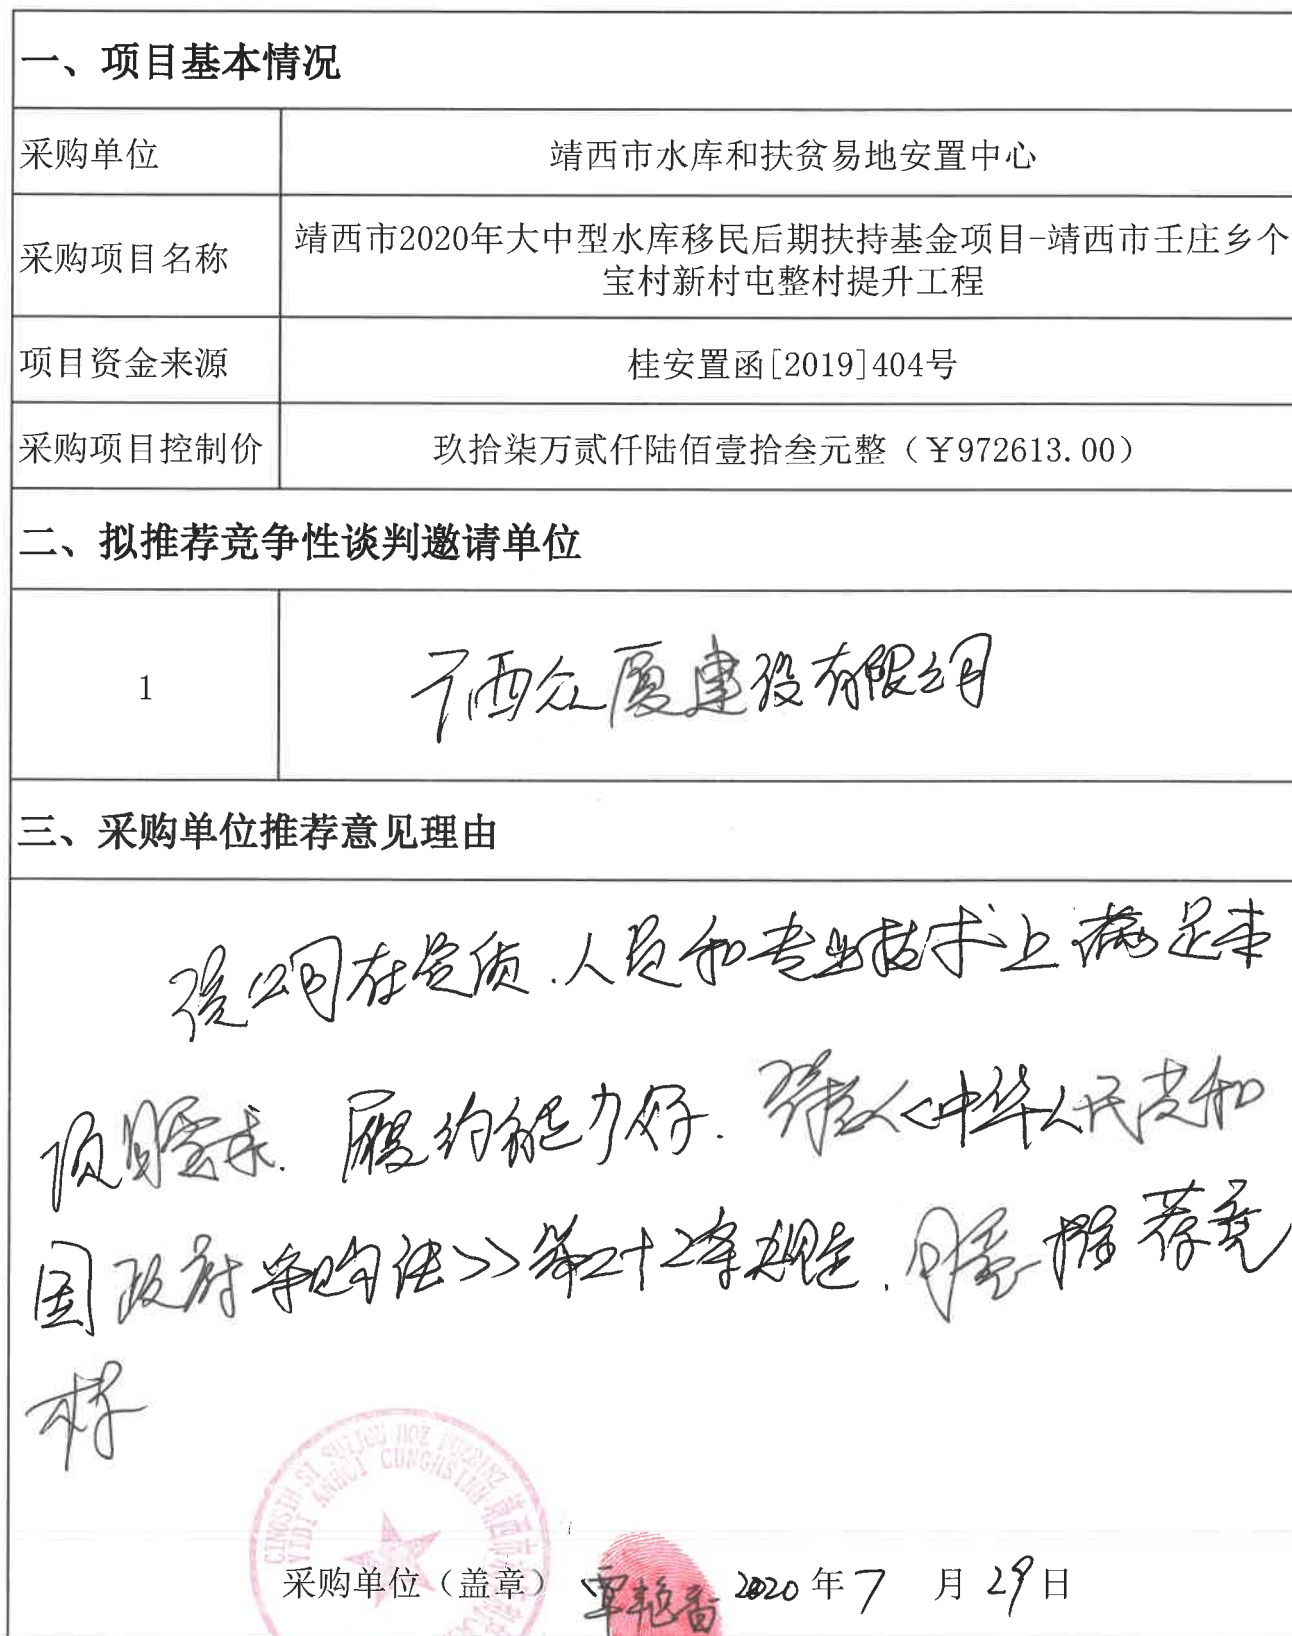 一、项目基本情况
采购单位
靖西市水库和扶贫易地安置中心
采购项目名称
靖西市2020年大中型水库移民后期扶持基金项目-靖西市壬庄乡个
宝村新村屯整村提升工程
项目资金来源
桂安置函[2019]404号
采购项目控制价
玖拾柒万贰仟陆佰壹拾叁元整（￥972613.00）
二、拟推荐竞争性谈判邀请单位
1
广西众厦建设有限公司
三、采购单位推荐意见理由
该公司在资质、人员和专业技术上满足本
项目需求、履约能力好. 符合《中华人民共和
国政府采购法》第二十二条规定、同意推荐竞
标
CINGSIH SI SUIJGU HOZ FUZBINZ 靖西市
YIDI ANHCI CUNGHSINH
采购单位（盖章） 覃艳香 2020 年 7 月 29 日